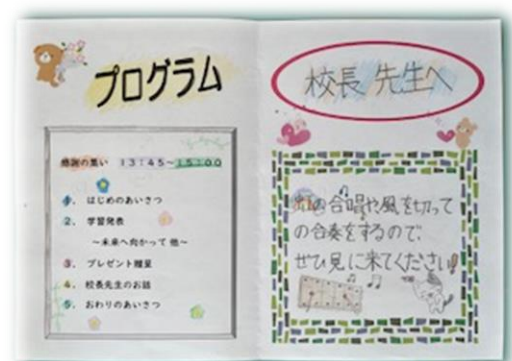 プログラム
感謝の集い 13:45〜15:00
1. はじめのあいさつ
2. 学習発表
〜未来へ向かって 他〜
3. プレゼント贈呈
4. 校長先生のお話
5. おわりのあいさつ
校長先生へ
虹の合唱や風を切って
の合奏をするので、
ぜひ見に来てください!